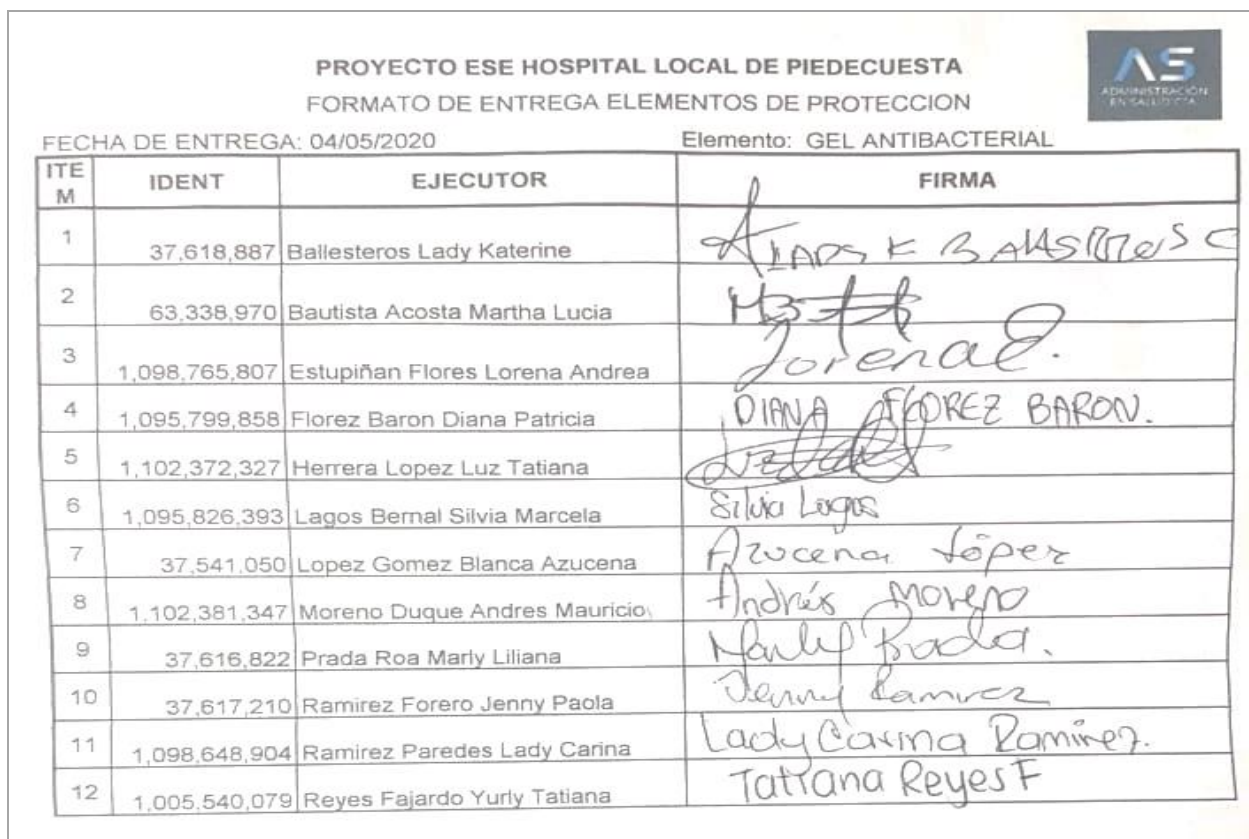 PROYECTO ESE HOSPITAL LOCAL DE PIEDECUESTA
FORMATO DE ENTREGA ELEMENTOS DE PROTECCION
AS
ADMINISTRACIÓN
EN SALUD CTA
FECHA DE ENTREGA: 04/05/2020 Elemento: GEL ANTIBACTERIAL
ITEM IDENT EJECUTOR FIRMA
1 37,618,887 Ballesteros Lady Katerine
2 63,338,970 Bautista Acosta Martha Lucia
3 1,098,765,807 Estupiñan Flores Lorena Andrea Lorena E.
4 1,095,799,858 Florez Baron Diana Patricia DIANA FLOREZ BARON.
5 1,102,372,327 Herrera Lopez Luz Tatiana
6 1,095,826,393 Lagos Bernal Silvia Marcela Silvia Lagos
7 37,541,050 Lopez Gomez Blanca Azucena Azucena López
8 1,102,381,347 Moreno Duque Andres Mauricio Andrés Moreno
9 37,616,822 Prada Roa Marly Liliana Marly Prada.
10 37,617,210 Ramirez Forero Jenny Paola Jenny Ramirez
11 1,098,648,904 Ramirez Paredes Lady Carina Lady Carina Ramirez.
12 1,005,540,079 Reyes Fajardo Yurly Tatiana Tatiana Reyes F